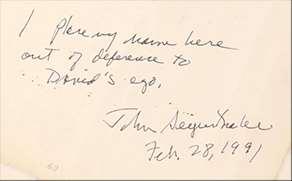 I place my name here
out of deference to
David's ego.
John Seigenthaler
Feb. 28, 1991